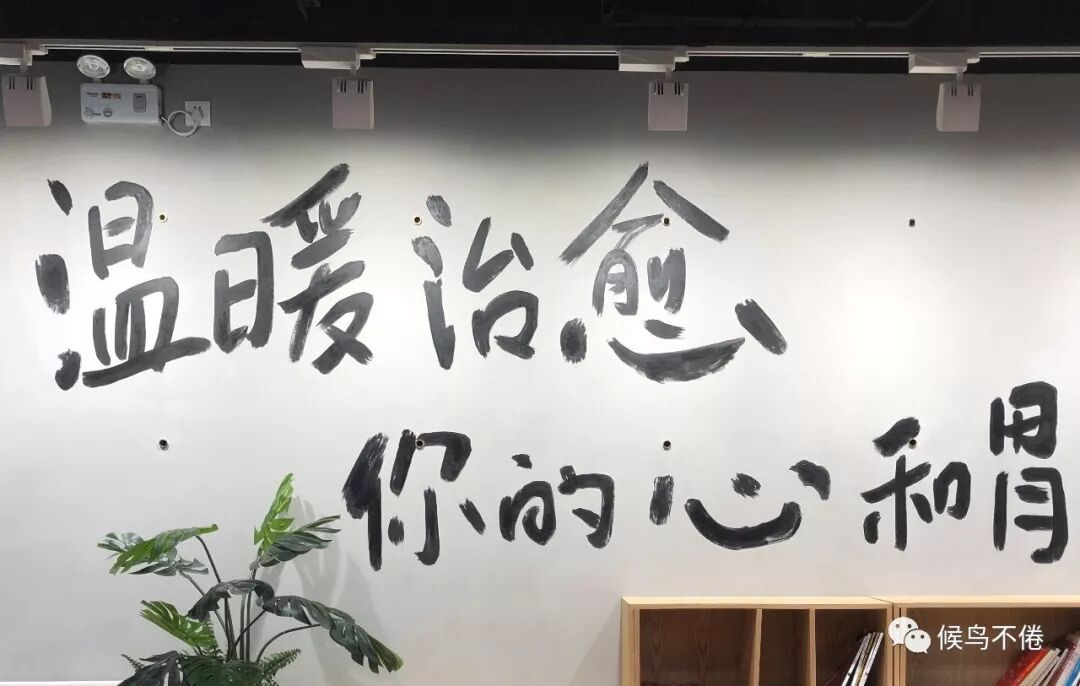 温暖治愈
你的心和胃
候鸟不倦